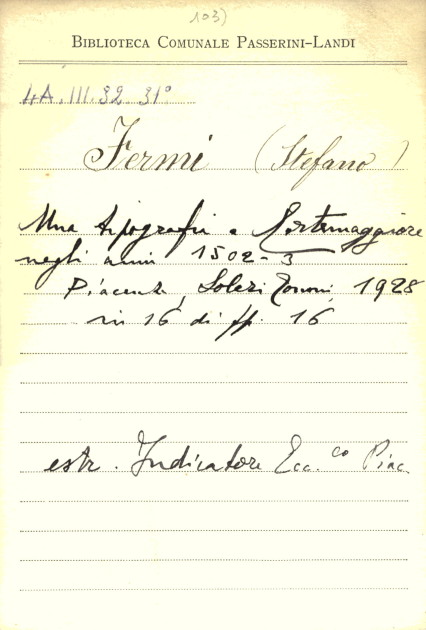 103)
BIBLIOTECA COMUNALE PASSERINI-LANDI
4A.III.32 31°
Fermi (Stefano)
Una tipografia a Cortemaggiore
negli anni 1502-3
Piacenza, Solari Tononi, 1928
in 16 di pp. 16
estr. Indicatore Ecc.co Piac.